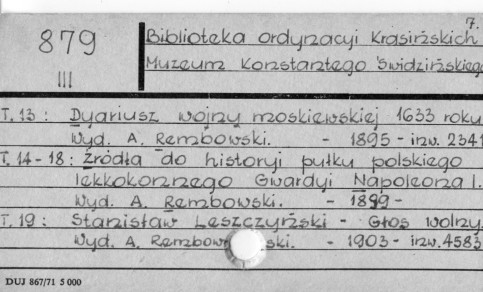 7.
879 Biblioteka ordynacyi Krasińskich
III Muzeum Konstantego Świdzińskiego
T. 13 : Dyariusz wojny moskiewskiej 1633 roku
Wyd. A. Rembowski. - 1895 - inw. 2341
T. 14 - 18 : Źródła do historyi pułku polskiego
lekkokonnego Gwardyi Napoleona I.
Wyd. A. Rembowski. - 1899 -
T. 19 : Stanisław Leszczyński - Głos wolny.
Wyd. A. Rembowski. - 1903 - inw. 4583
DUJ 867/71 5 000